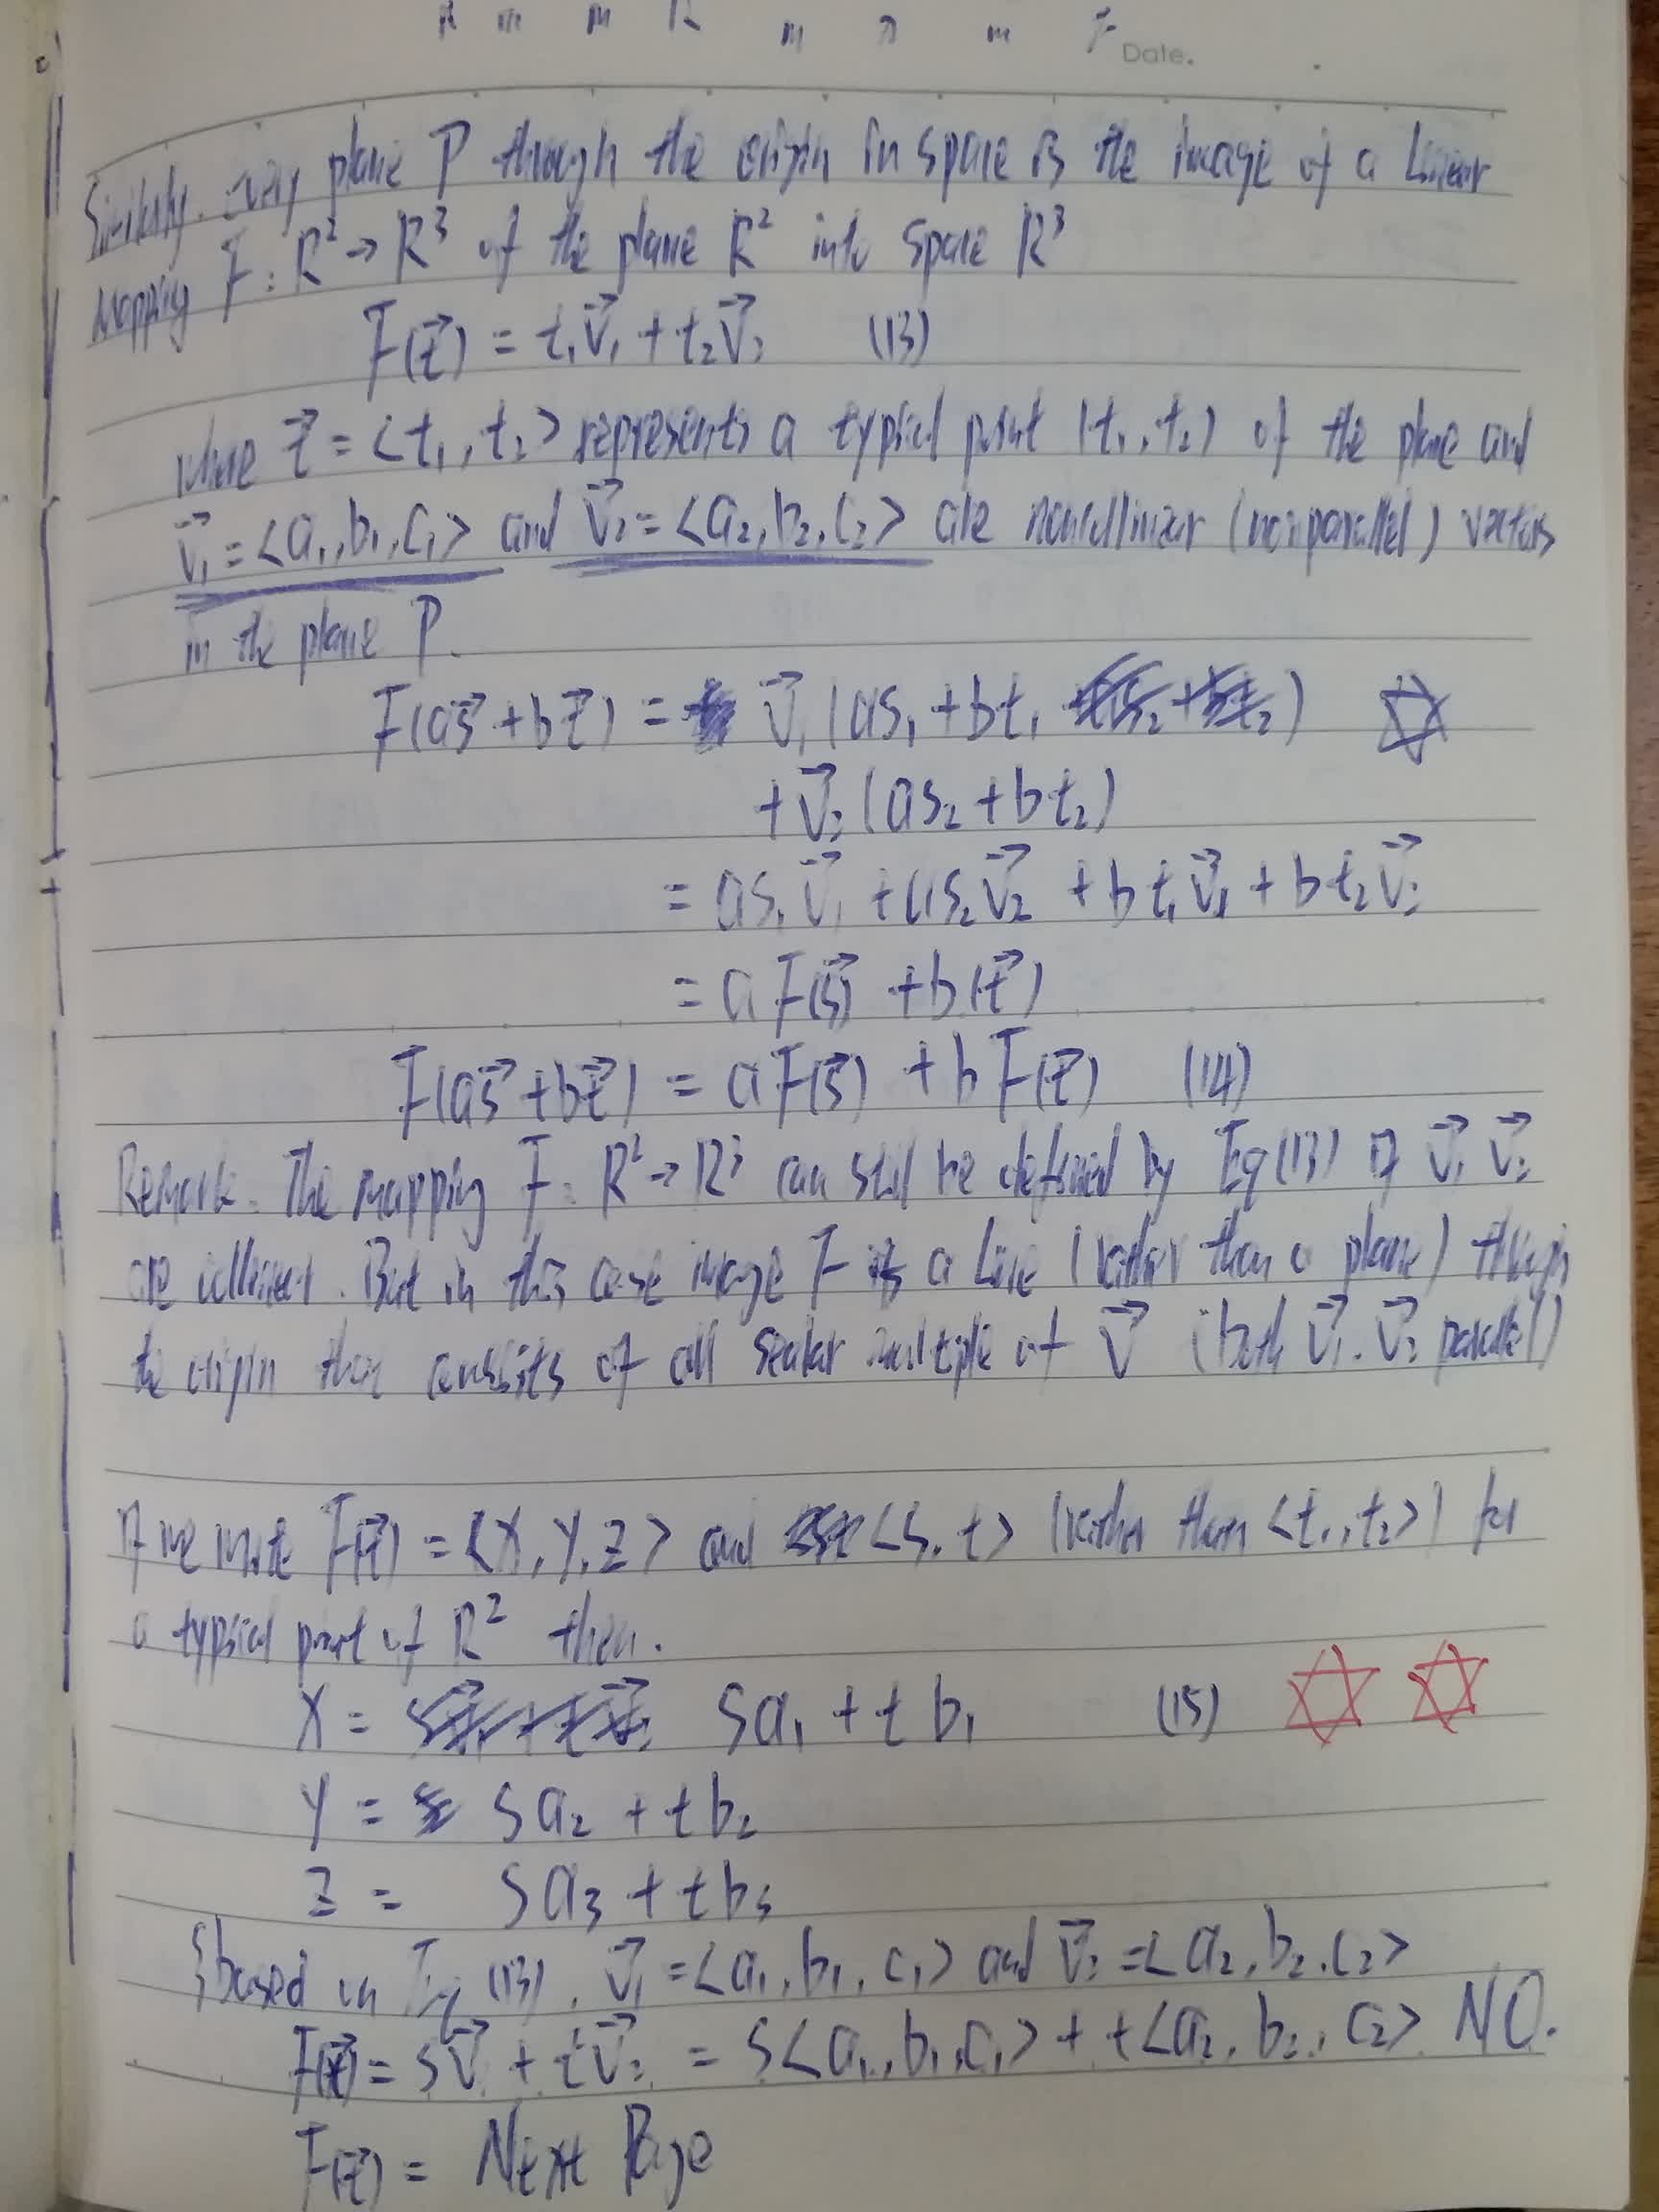 Date.
Similarly. Every plane P through the origin in space is the image of a Linear
Mapping F : R² → R³ of the plane R² into space R³
F(t⃗) = t₁v⃗₁ + t₂v⃗₂ (13)
where t⃗ = <t₁, t₂> represents a typical point (t₁, t₂) of the plane and
v⃗₁ = <a₁, b₁, c₁> and v⃗₂ = <a₂, b₂, c₂> are noncollinear (nonparallel) vectors
in the plane P.
F(as⃗ + bt⃗) = v⃗₁ (as₁ + bt₁ )
+ v⃗₂ (as₂ + bt₂)
= as₁v⃗₁ + as₂v⃗₂ + bt₁v⃗₁ + bt₂v⃗₂
= a F(s⃗) + b(t⃗)
F(as⃗ + bt⃗) = a F(s⃗) + b F(t⃗) (14)
Remark. The mapping F : R² → R³ can still be defined by Eq (13) if v⃗₁ v⃗₂
are collinear. But in this case image F is a Line (rather than a plane) through
the origin that consists of all scalar multiple of v⃗ (both v⃗₁. v⃗₂ parallel)
If we write F(t⃗) = <X, Y, Z> and <s, t> (rather than <t₁, t₂>) for
a typical point of R² then.
X = sa₁ + tb₁ (15)
Y = sa₂ + tb₂
Z = sa₃ + tb₃
based on Eq (13), v⃗₁ = <a₁, b₁, c₁> and v⃗₂ = <a₂, b₂, c₂>
F(t⃗) = sv⃗₁ + tv⃗₂ = s<a₁, b₁, c₁> + t<a₂, b₂, c₂> NO.
F(t⃗) = Next Page